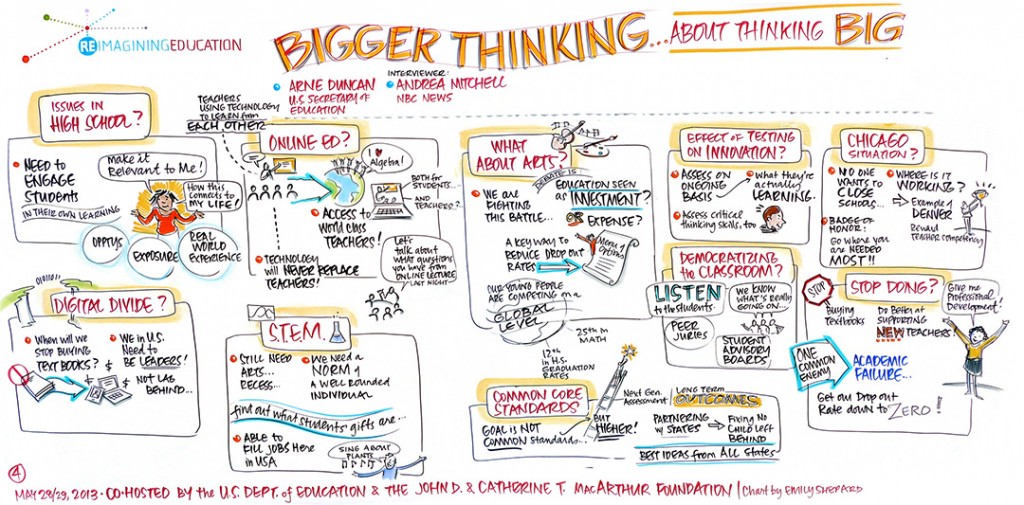 REIMAGINING EDUCATION
BIGGER THINKING... ABOUT THINKING BIG
ARNE DUNCAN
U.S. SECRETARY of
EDUCATION
INTERVIEWER:
ANDREA MITCHELL
NBC NEWS
ISSUES IN
HIGH SCHOOL?
NEED to
ENGAGE
Students
IN THEIR OWN LEARNING
Make it
Relevant to Me!
How this
connects to
MY LIFE!
OPPTYS
EXPOSURE
REAL
WORLD
EXPERIENCE
TEACHERS
USING TECHNOLOGY
TO LEARN from
EACH OTHER
ONLINE ED?
I ♥
Algebra!
BOTH for
STUDENTS...
and
TEACHERS?
ACCESS to
World class
TEACHERS!
TECHNOLOGY
will NEVER REPLACE
TEACHERS!
Let's
talk about
what questions
you have from
ONLINE LECTURE
LAST NIGHT...
WHAT
ABOUT ARTS?
WE ARE
FIGHTING
THIS BATTLE...
DEBATE IS
EDUCATION SEEN
as INVESTMENT?
OR EXPENSE?
A KEY WAY to
REDUCE DROP OUT
RATES
Menu of
Options
OUR YOUNG PEOPLE
ARE COMPETING on a
GLOBAL
LEVEL
25th in
MATH
12th
in H.S.
GRADUATION
RATES
EFFECT of TESTING
ON INNOVATION?
ASSESS ON
ONGOING
BASIS
what they're
actually
LEARNING.
Assess critical
thinking skills, too
DEMOCRATIZING
the CLASSROOM?
LISTEN
to the Students!
WE KNOW
WHAT'S REALLY
GOING ON...
PEER
JURIES
STUDENT
ADVISORY
BOARDS!
CHICAGO
SITUATION?
NO ONE
WANTS to
CLOSE
SCHOOLS...
WHERE IS IT
WORKING?
Example of
DENVER
Reward
TEACHER competency
BADGE of
HONOR:
Go where you
are NEEDED
MOST!!
DIGITAL DIVIDE?
When will we
STOP BUYING
TEXT BOOKS?
We in U.S.
Need to
BE LEADERS!
&
NOT LAG
BEHIND...
S.T.E.M.
STILL NEED
ARTS...
RECESS...
WE NEED a
NORM of
a WELL ROUNDED
INDIVIDUAL
find out what students' gifts are...
ABLE to
FILL JOBS HERE
in USA
SING ABOUT
PLANTS
COMMON CORE
STANDARDS
GOAL IS NOT
COMMON Standards...
BUT
HIGHER!
Next Gen
Assessment
LONG TERM
OUTCOMES
PARTNERING
w/ STATES
Fixing NO
CHILD LEFT
BEHIND
BEST IDEAS from ALL States
STOP DOING?
STOP
Buying
Textbooks
Do Better at
SUPPORTING
NEW TEACHERS
Give me
Professional
Development!
ONE
COMMON
ENEMY
ACADEMIC
FAILURE...
Get our Drop out
Rate down to ZERO!
4
MAY 28/29, 2013 · CO-HOSTED BY the U.S. DEPT. of EDUCATION & THE JOHN D. & CATHERINE T. MacARTHUR FOUNDATION | Chart by EMILY SHEPARD